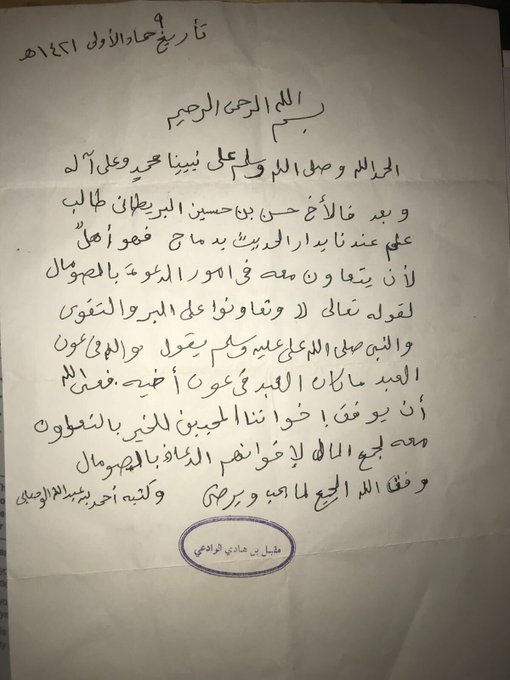 تأريخ ٩ جماد الأولى ١٤٢١هـ
بسم الله الرحمن الرحيم
الحمد لله وصلى الله وسلم على نبينا محمد وعلى آله
وبعد فالأخ حسن بن حسين البريطاني طالب
علم عندنا بدار الحديث بدماج فهو أهلٌ
لأن يتعاون معه في امور الدعوة بالصومال
لقوله تعالى وتعاونوا على البر والتقوى
والنبي صلى الله على عليه وسلم يقول والله في عون
العبد ما كان العبد في عون أخيه. فعسى الله
أن يوفق إخواننا المحبين للخير بالتعاون
معه لجمع المال لإخوانهم الدعاة بالصومال
وفق الله الجميع لما يحب ويرضى وكتبه أحمد بن عبدالله الوصابي
مقبل بن هادي الوادعي